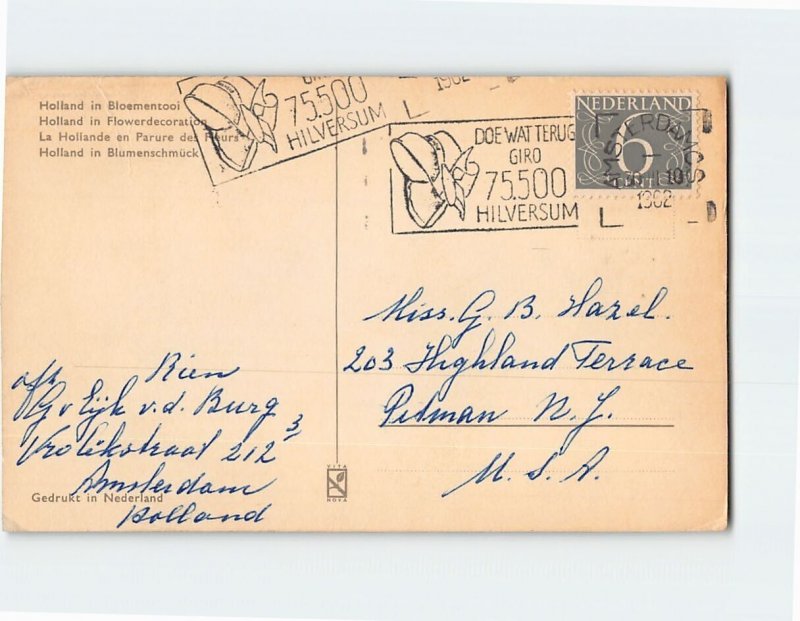 Holland in Bloementooi
Holland in Flowerdecoration
La Hollande en Parure des Fleurs
Holland in Blumenschmück
GIRO
75.500
HILVERSUM
1962
DOE WAT TERUG
GIRO
75.500
HILVERSUM
NEDERLAND
6
CENT
AMSTERDAM CS
1962
Miss. G. B. Hazel.
203 Highland Terrace
Pitman N. J.
U. S. A.
Rien
afz
G v Eijk v.d. Burg
Vrolikstraat 212 3/
Amsterdam
Holland
Gedrukt in Nederland
VITA
NOVA